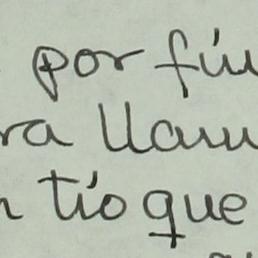 por fin
ra llam
n tío que